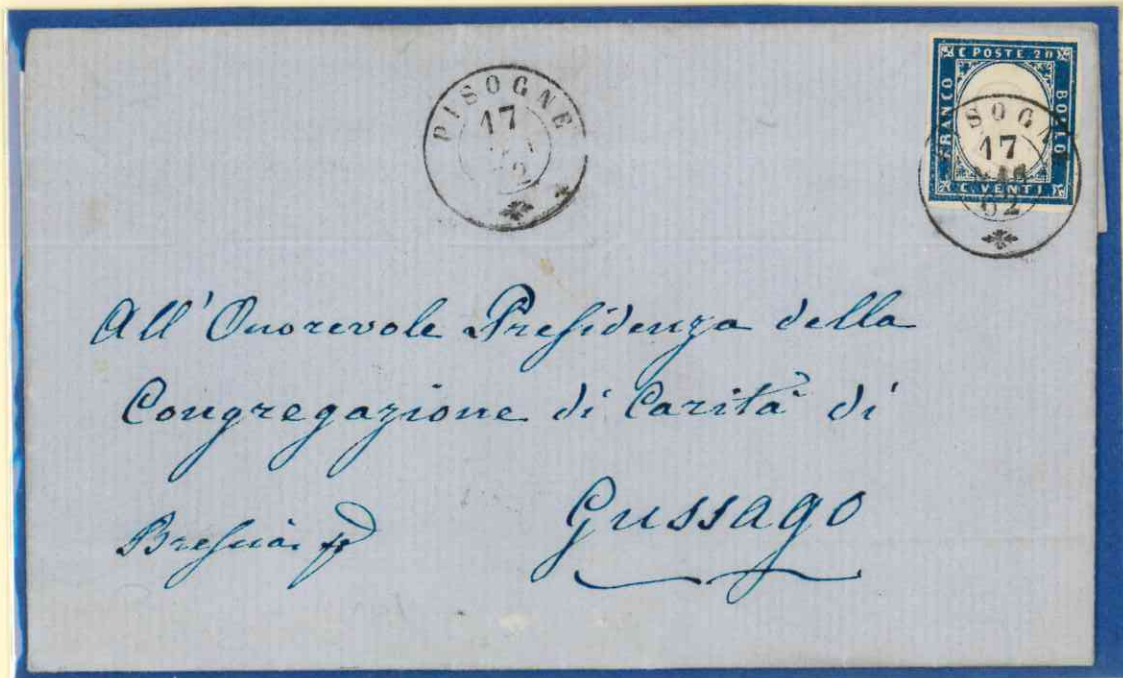 PISOGNE
17
C POSTE 20
FRANCO
BOLLO
C. VENTI
17
62
All'Onorevole Presidenza della
Congregazione di Carità di
Brescia p
Gussago